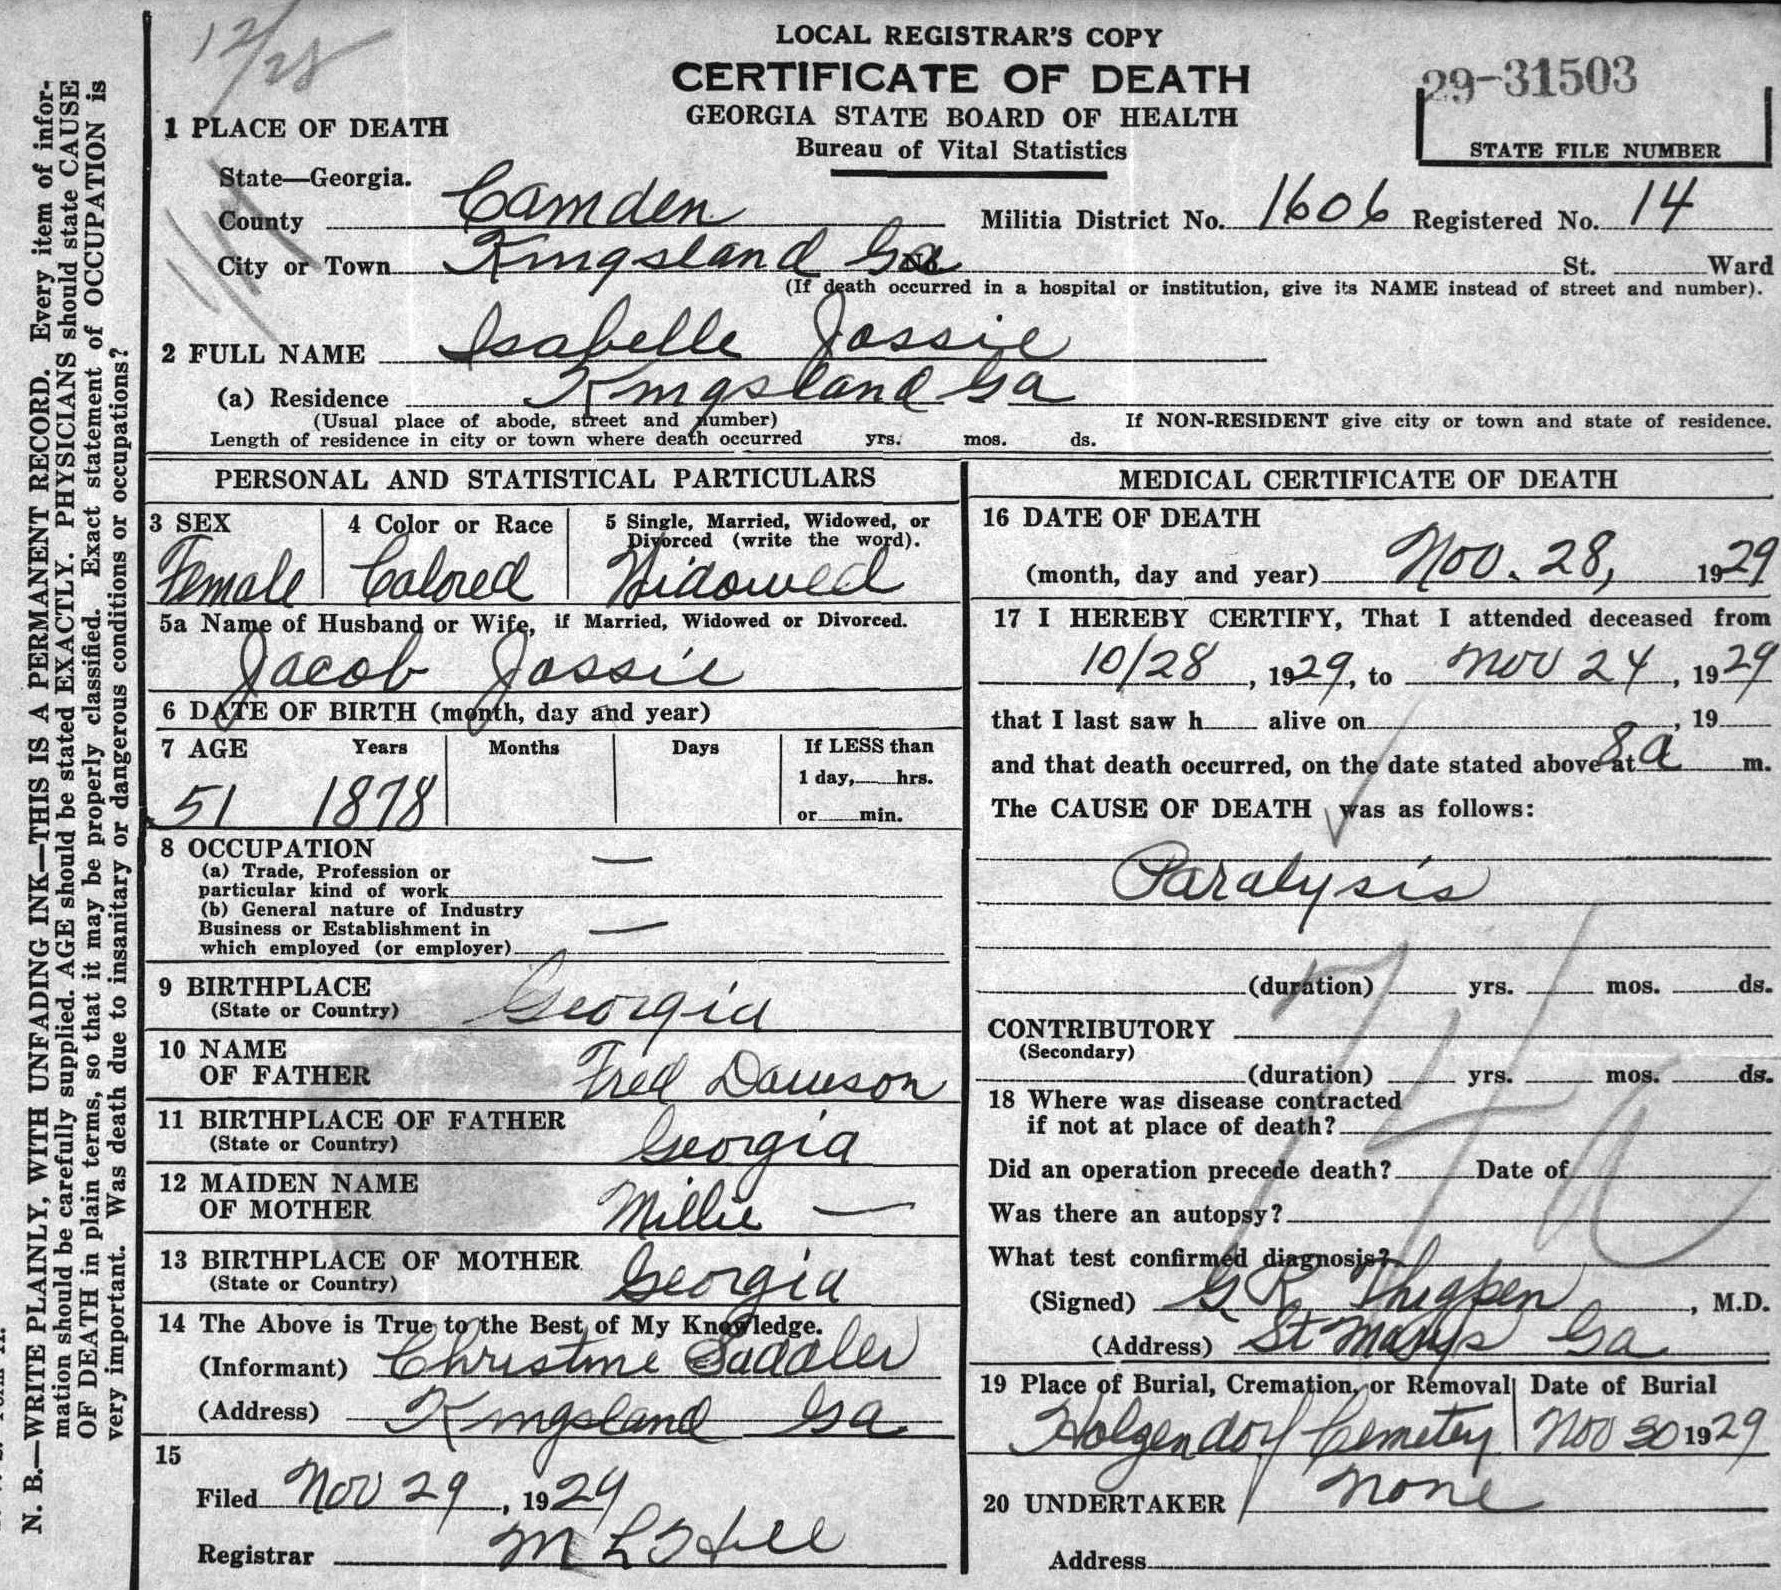 12/28
LOCAL REGISTRAR'S COPY
CERTIFICATE OF DEATH
GEORGIA STATE BOARD OF HEALTH
Bureau of Vital Statistics
29-31503
STATE FILE NUMBER
1 PLACE OF DEATH
State—Georgia.
County Camden Militia District No. 1606 Registered No. 14
City or Town Kingsland Ga No. St. Ward
(If death occurred in a hospital or institution, give its NAME instead of street and number).
2 FULL NAME Isabelle Jossie
(a) Residence Kingsland Ga
(Usual place of abode, street and number) If NON-RESIDENT give city or town and state of residence.
Length of residence in city or town where death occurred yrs. mos. ds.
PERSONAL AND STATISTICAL PARTICULARS
3 SEX 4 Color or Race 5 Single, Married, Widowed, or
Divorced (write the word).
Female Colored Widowed
5a Name of Husband or Wife, if Married, Widowed or Divorced.
Jacob Jossie
6 DATE OF BIRTH (month, day and year)
7 AGE Years Months Days If LESS than
1 day, hrs.
51 1878 or min.
8 OCCUPATION —
(a) Trade, Profession or
particular kind of work
(b) General nature of Industry
Business or Establishment in —
which employed (or employer)
9 BIRTHPLACE
(State or Country) Georgia
10 NAME
OF FATHER Fred Dawson
11 BIRTHPLACE OF FATHER
(State or Country) Georgia
12 MAIDEN NAME
OF MOTHER Millie —
13 BIRTHPLACE OF MOTHER
(State or Country) Georgia
14 The Above is True to the Best of My Knowledge.
(Informant) Christine Saddler
(Address) Kingsland Ga.
15
Filed Nov 29, 1929
Registrar M L Hill
MEDICAL CERTIFICATE OF DEATH
16 DATE OF DEATH
(month, day and year) Nov. 28, 1929
17 I HEREBY CERTIFY, That I attended deceased from
10/28, 1929, to Nov 24, 1929
that I last saw h alive on , 19
and that death occurred, on the date stated above at 8 a m.
The CAUSE OF DEATH was as follows:
Paralysis
(duration) yrs. mos. ds.
CONTRIBUTORY
(Secondary)
(duration) yrs. mos. ds.
18 Where was disease contracted
if not at place of death?
Did an operation precede death? Date of
Was there an autopsy?
What test confirmed diagnosis?
(Signed) G R Thigpen, M.D.
(Address) St Marys Ga
19 Place of Burial, Cremation, or Removal Date of Burial
Holzendorf Cemetery Nov 30 1929
20 UNDERTAKER None
Address
N. B.—WRITE PLAINLY, WITH UNFADING INK—THIS IS A PERMANENT RECORD. Every item of infor-
mation should be carefully supplied. AGE should be stated EXACTLY. PHYSICIANS should state CAUSE
OF DEATH in plain terms, so that it may be properly classified. Exact statement of OCCUPATION is
very important. Was death due to insanitary or dangerous conditions or occupations?